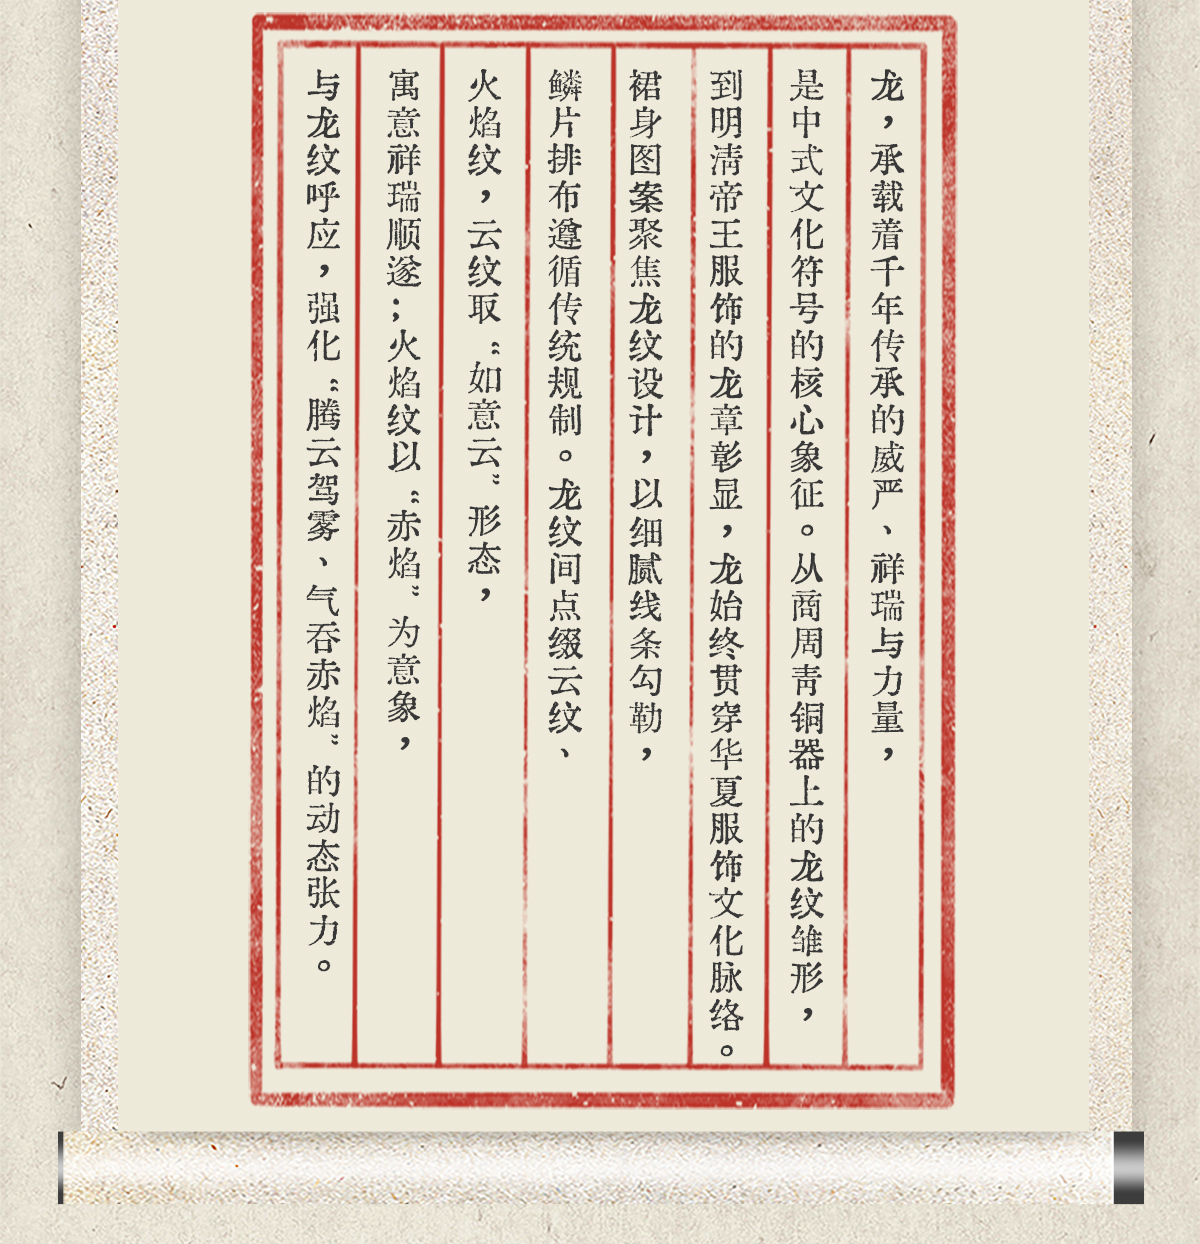 龙，承载着千年传承的威严、祥瑞与力量，
是中式文化符号的核心象征。从商周青铜器上的龙纹雏形，
到明清帝王服饰的龙章彰显，龙始终贯穿华夏服饰文化脉络。
裙身图案聚焦龙纹设计，以细腻线条勾勒，
鳞片排布遵循传统规制。龙纹间点缀云纹、
火焰纹，云纹取“如意云”形态，
寓意祥瑞顺遂；火焰纹以“赤焰”为意象，
与龙纹呼应，强化“腾云驾雾、气吞赤焰”的动态张力。